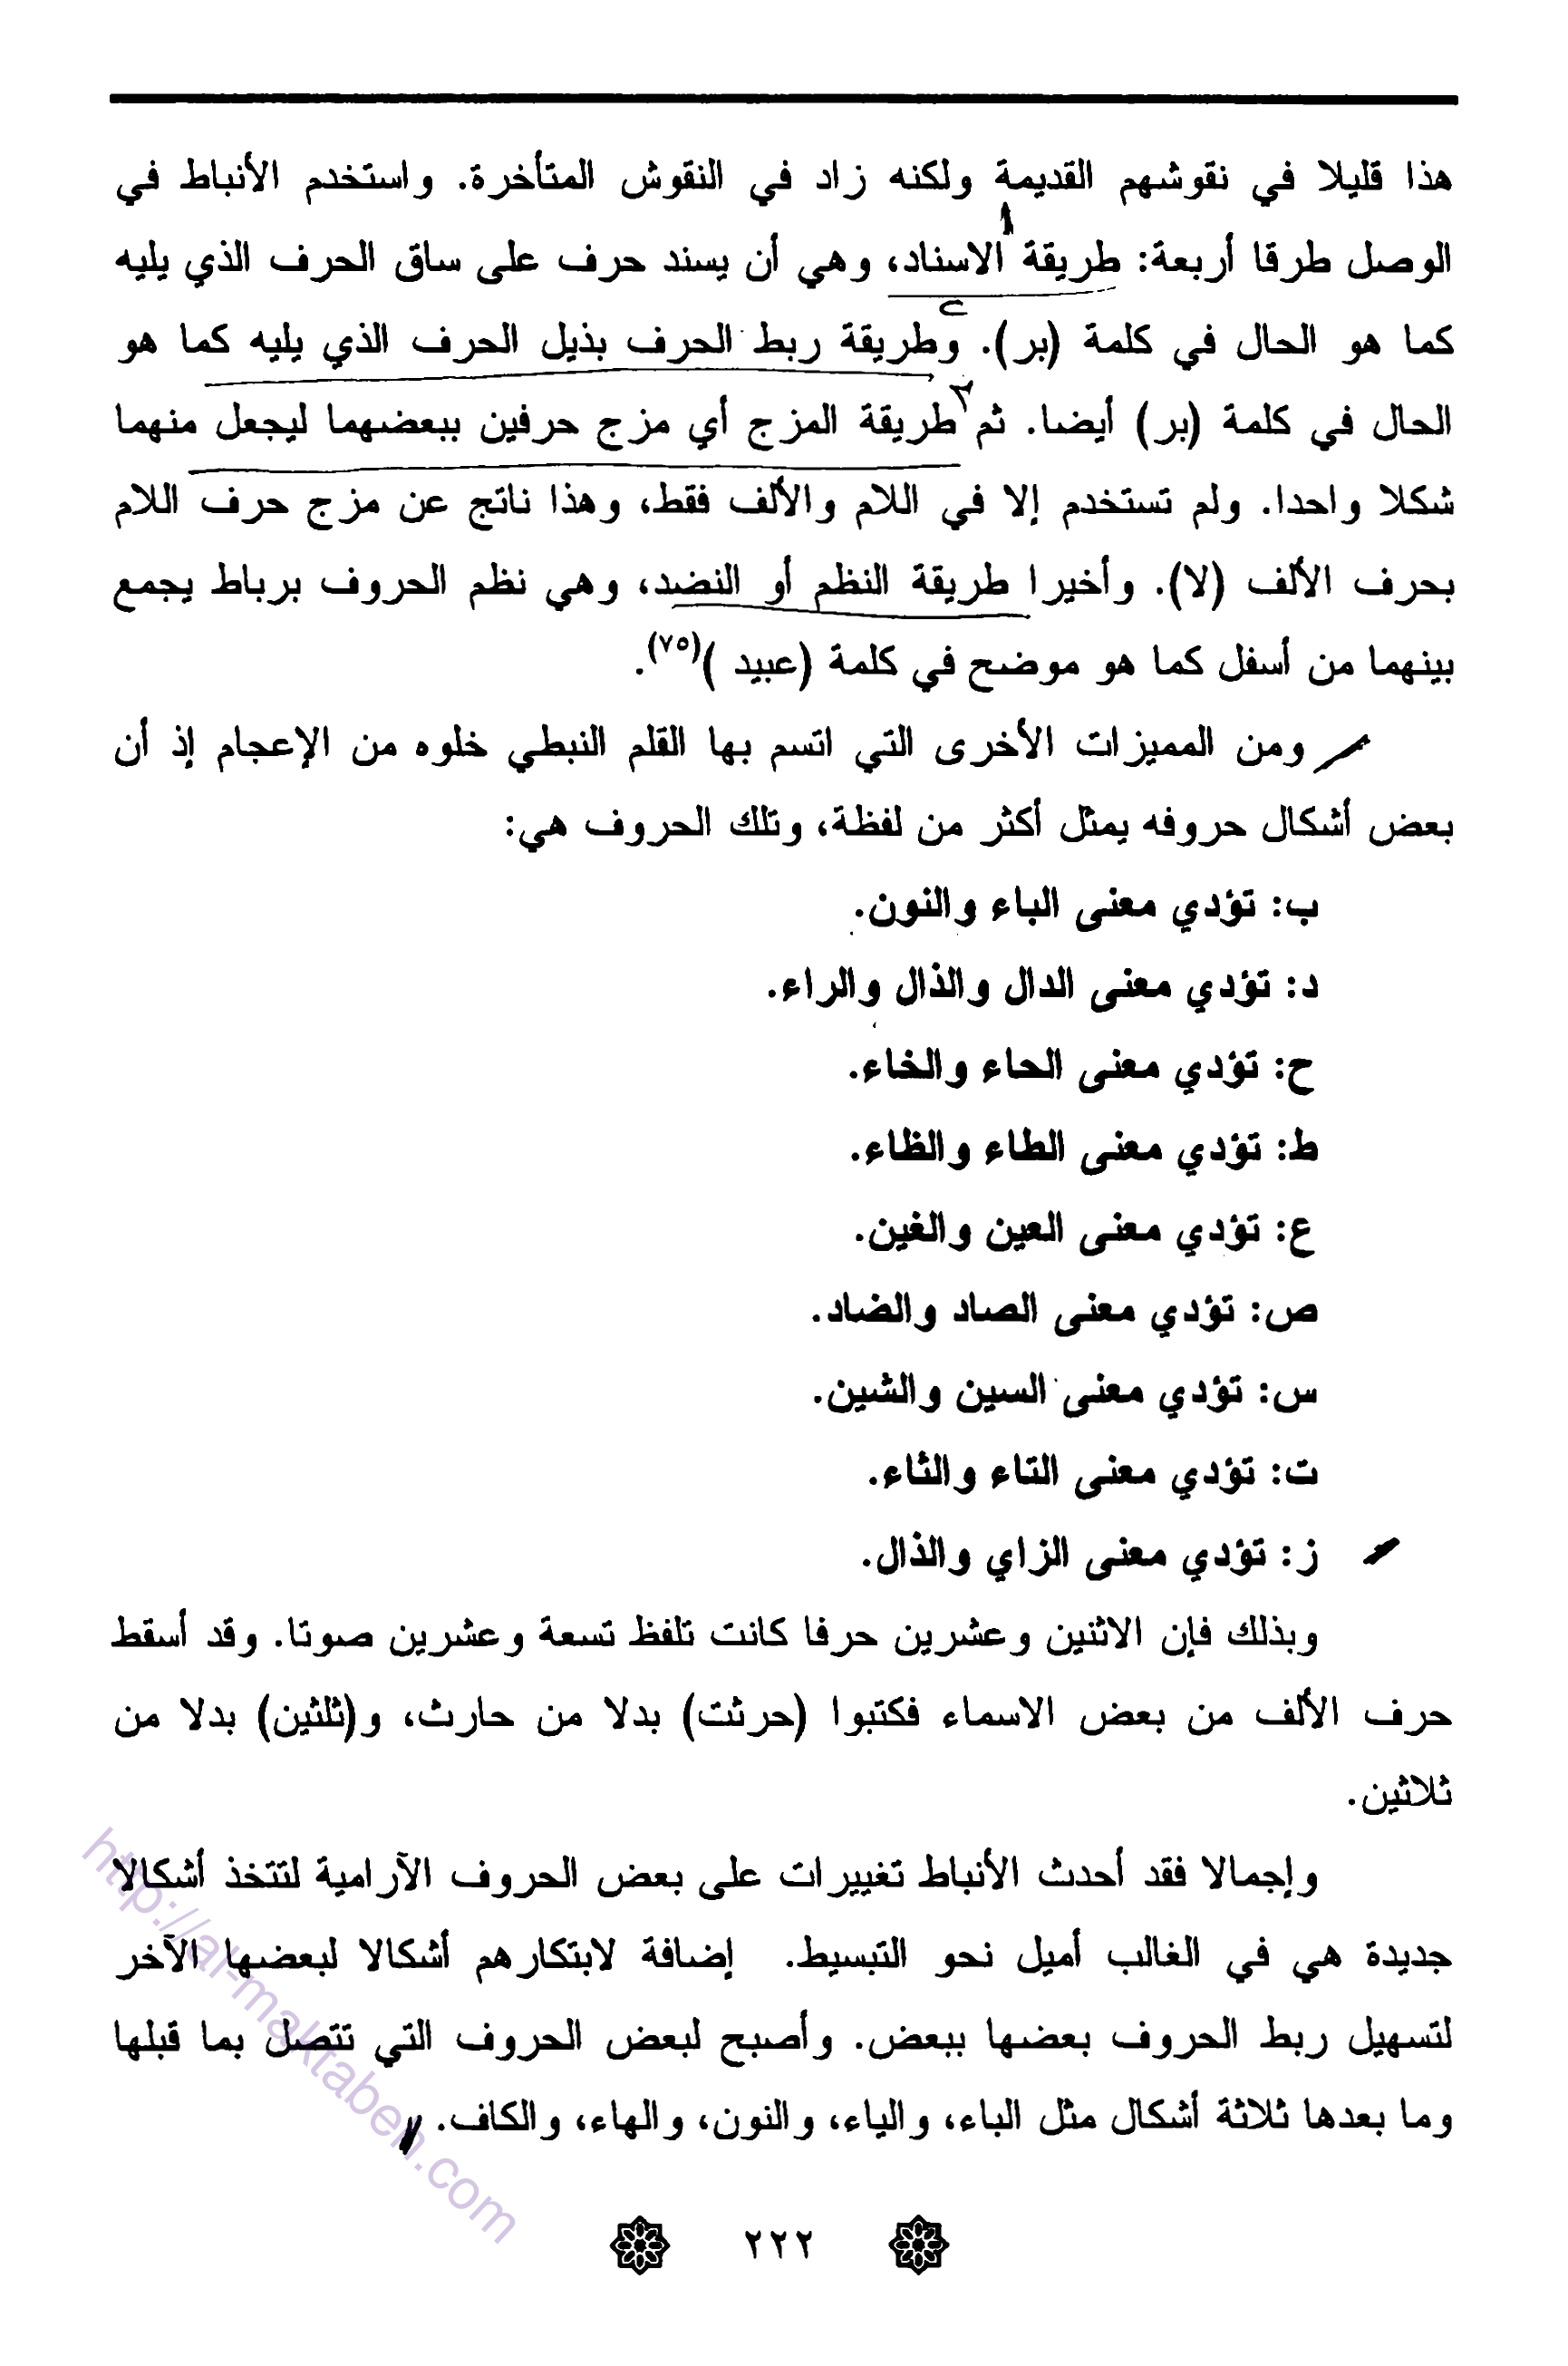 هذا قليلا في نقوشهم القديمة ولكنه زاد في النقوش المتأخرة. واستخدم الأنباط في
الوصل طرقا أربعة: طريقة الاسناد، وهي أن يسند حرف على ساق الحرف الذي يليه
كما هو الحال في كلمة (بر). وطريقة ربط الحرف بذيل الحرف الذي يليه كما هو
الحال في كلمة (بر) أيضا. ثم طريقة المزج أي مزج حرفين ببعضهما ليجعل منهما
شكلا واحدا. ولم تستخدم إلا في اللام والألف فقط، وهذا ناتج عن مزج حرف اللام
بحرف الألف (لا). وأخيرا طريقة النظم أو النضد، وهي نظم الحروف برباط يجمع
بينهما من أسفل كما هو موضح في كلمة (عبيد )(٧٥).
ومن المميزات الأخرى التي اتسم بها القلم النبطي خلوه من الإعجام إذ أن
بعض أشكال حروفه يمثل أكثر من لفظة، وتلك الحروف هي:
ب: تؤدي معنى الباء والنون.
د: تؤدي معنى الدال والذال والراء.
ح: تؤدي معنى الحاء والخاء.
ط: تؤدي معنى الطاء والظاء.
ع: تؤدي معنى العين والغين.
ص: تؤدي معنى الصاد والضاد.
س: تؤدي معنى السين والشين.
ت: تؤدي معنى التاء والثاء.
ز: تؤدي معنى الزاي والذال.
وبذلك فإن الاثنين وعشرين حرفا كانت تلفظ تسعة وعشرين صوتا. وقد أسقط
حرف الألف من بعض الاسماء فكتبوا (حرثت) بدلا من حارث، و(ثلثين) بدلا من
ثلاثين.
وإجمالا فقد أحدث الأنباط تغييرات على بعض الحروف الآرامية لتتخذ أشكالا
جديدة هي في الغالب أميل نحو التبسيط. إضافة لابتكارهم أشكالا لبعضها الآخر
لتسهيل ربط الحروف بعضها ببعض. وأصبح لبعض الحروف التي تتصل بما قبلها
وما بعدها ثلاثة أشكال مثل الباء، والياء، والنون، والهاء، والكاف.
٢٢٢
http://al-maktabeh.com